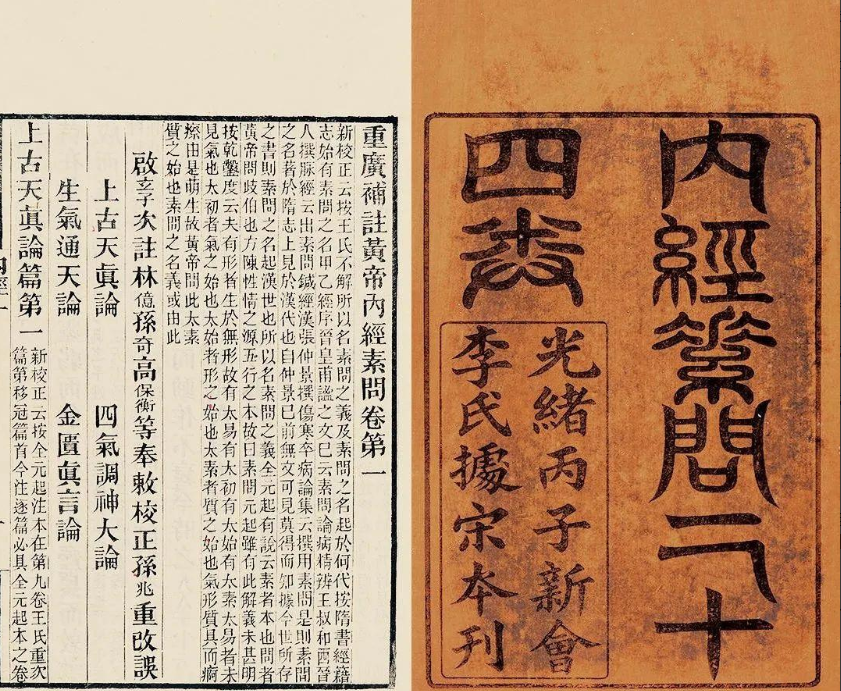 內經素問二十
四卷
光緒丙子新會
李氏據宋本刊
重廣補註黃帝內經素問卷第一
新校正云按王氏不解所以名素問之義及素問之名起於何代按隋書經籍
志始有素問之名甲乙經序晉皇甫謐之文已云素問論病精辨王叔和西晉
人撰脉經云出素問鍼經漢張仲景撰傷寒卒病論集云撰用素問是則素問
之名著於隋志上見於漢代也自仲景已前無文可見莫得而知據今世所存
之書則素問之名起漢世也所以名素問之義全元起有說云素者本也問者
黃帝問歧伯也方陳性情之源五行之本故曰素問元起雖有此解義未甚明
按乾鑿度云夫有形者生於無形故有太易有太初有太始有太素太易者未
見氣也太初者氣之始也太始者形之始也太素者質之始也氣形質具而痾
瘵由是萌生故黃帝問此太素
質之始也素問之名義或由此
啟玄子次註林億孫奇高保衡等奉敕校正孫兆重改誤
上古天眞論 四氣調神大論
生氣通天論 金匱眞言論
上古天眞論篇第一
新校正云按全元起注本在第九卷王氏重次
篇第移冠篇首今注逐篇必具全元起本之卷